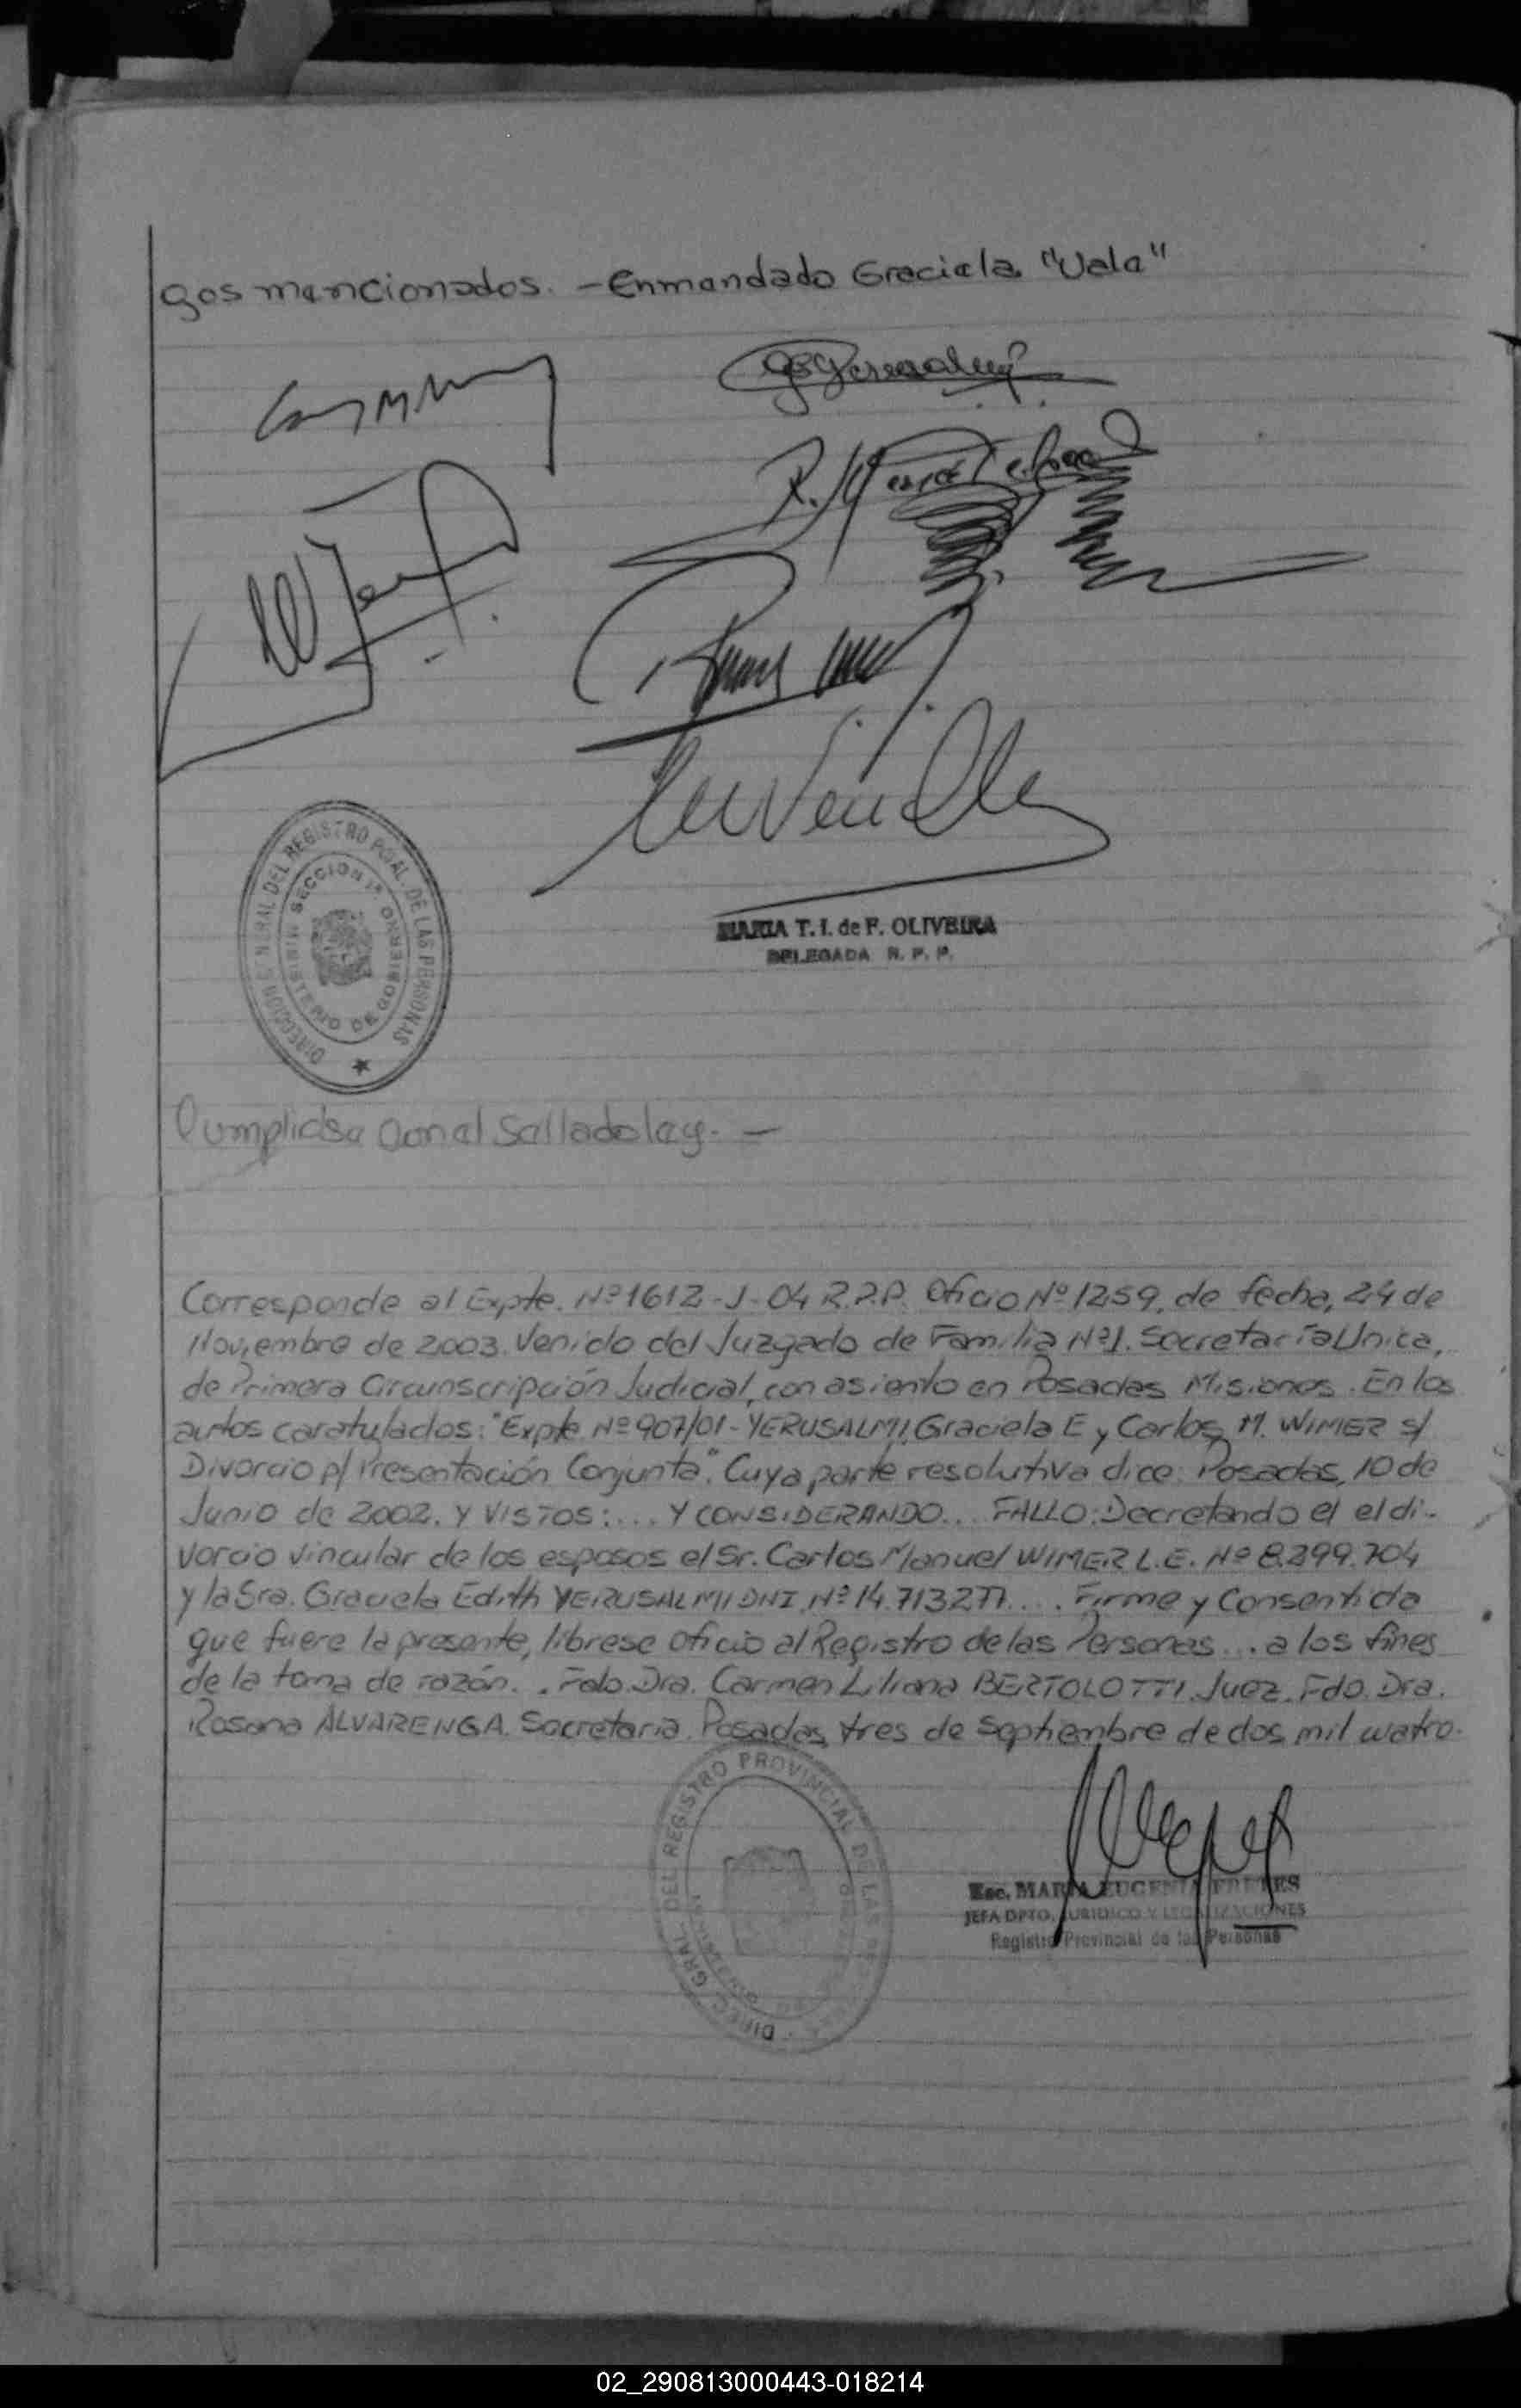 gos mencionados. - Enmandado Graciela "Vala"
MARIA T. I. de F. OLIVEIRA
DELEGADA R. P. P.
DIRECCION GENERAL DEL REGISTRO PCIAL. DE LAS PERSONAS
SECCION 1ª. MINISTERIO DE GOBIERNO
Cumplidse con el Sellado ley. -
Corresponde al Expte. Nº 1612-J-04 R.P.P. Oficio Nº 1259, de fecha, 24 de
Noviembre de 2003. Venido del Juzgado de Familia Nº 1. Secretaría Unica,
de Primera Circunscripción Judicial, con asiento en Posadas Misiones. En los
autos caratulados: "Expte. Nº 907/01 - YERUSALMI, Graciela E y Carlos M. WIMER s/
Divorcio p/ Presentación Conjunta". Cuya parte resolutiva dice: Posadas, 10 de
Junio de 2002. Y VISTOS:... Y CONSIDERANDO... FALLO: Decretando el el di-
vorcio vincular de los esposos el Sr. Carlos Manuel WIMER L.E. Nº 8.299.704
y la Sra. Graciela Edith YERUSALMI DNI. Nº 14.713277.... Firme y Consentida
que fuere la presente, líbrese oficio al Registro de las Personas... a los fines
de la toma de razón.. Fdo. Dra. Carmen Liliana BERTOLOTTI. Juez. Fdo. Dra.
Rosana ALVARENGA. Secretaria. Posadas, tres de Septiembre de dos mil cuatro.
DIREC. GRAL. DEL REGISTRO PROVINCIAL DE LAS
Esc. MARIA EUGENIA FRETES
JEFA DPTO. JURIDICO Y LEGALIZACIONES
Registro Provincial de las Personas
02_290813000443-018214